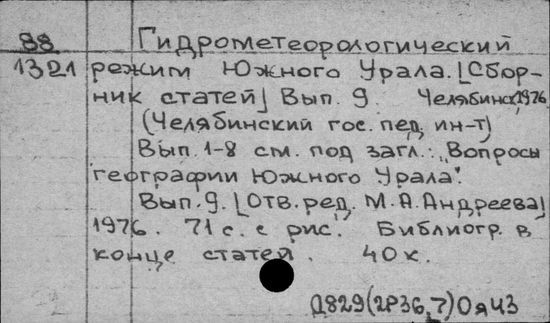 88 Гидрометеорологический
1321 режим Южного Урала. [Сбор-
ник статей] Вып. 9. Челябинск, 1976
(Челябинский гос. пед. ин-т)
Вып. 1-8 см. под загл.: "Вопросы
географии Южного Урала".
Вып. 9. [Отв. ред. М. А. Андреева]
1976. 71 с. с рис. Библиогр. в
конце статей. 40 к.
Д829(2Р36,7)0я43